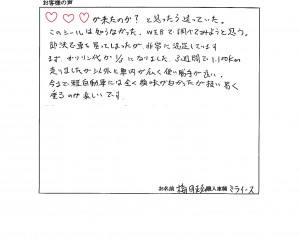 お客様の声
♡♡♡が来たのか?と思ったら違っていた。
このシールは知らなかった。WEBで調べてみようと思う。
即決で車を買ってしまったが、非常に満足しています
まず、ガソリン代が1/2になりました。3週間で1,100km
走りましたが 以外と車内が広く使い勝手が良い。
今まで軽自動車には全く興味が なかったが 扱い易く
乗るのが楽しいです。
お名前
購入車種 ミライース